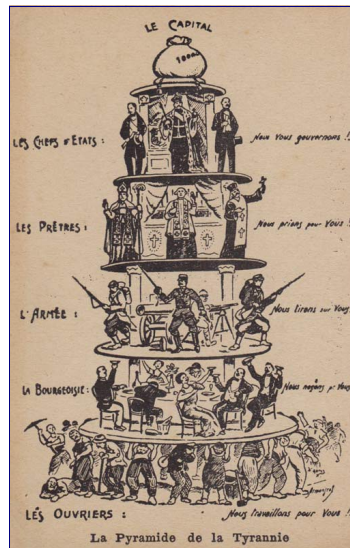 LE CAPITAL
1000
LES CHEFS D'ETATS :
Nous Vous gouvernons !!
LES PRÊTRES :
Nous prions pour Vous !
L'ARMÉE :
Nous tirons sur Vous
LA BOURGEOISIE :
Nous
LES OUVRIERS :
Nous travaillons pour Vous !!
La Pyramide de la Tyrannie